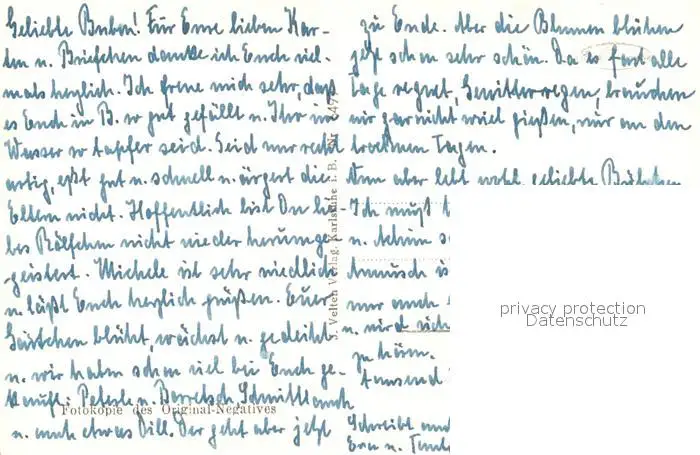 Geliebte Buben! Für Eure lieben Kar-
ten u. Briefchen danke ich Euch viel-
mals herzlich. Ich freue mich sehr, daß
es Euch in B. so gut gefällt u. Ihr im
Wasser so tapfer seid. Seid nur recht
artig, eßt gut u. schnell u. ärgert die
Eltern nicht. Hoffentlich bist Du lie-
bes Rölfchen nicht wieder herumge-
geistert. Michele ist sehr niedlich
u. läßt Euch herzlich grüßen. Euer
Gärtchen blüht, wächst u. gedeiht
u. wir haben schon viel bei Euch ge-
kauft: Petersle u. Borretsch, Schnittlauch
u. auch etwas Dill. Der geht aber jetzt
zu Ende. Aber die Blumen blühen
jetzt schon sehr schön. Da es fast alle
Tage regnet, Gewitterregen, brauchen
wir gar nicht viel gießen, nur an den
trocknen Tagen.
Nun aber lebt wohl, geliebte
Ich muß
u.
ist
nur auch
u. wird
zu hören.
Tausend
Schreibt
u.
J. Velten Verlag, Karlsruhe i. B.
Fotokopie des Original-Negatives
privacy protection
Datenschutz